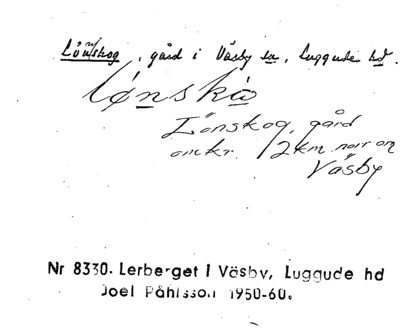 Lönskog, gård i Väsby sn, Luggude hd.
Lønskå
Lönskog, gård
omkr. 2 km norr om
Väsby
Nr 8330. Lerberget i Väsby, Luggude hd
Joel Påhlsson 1950-60.